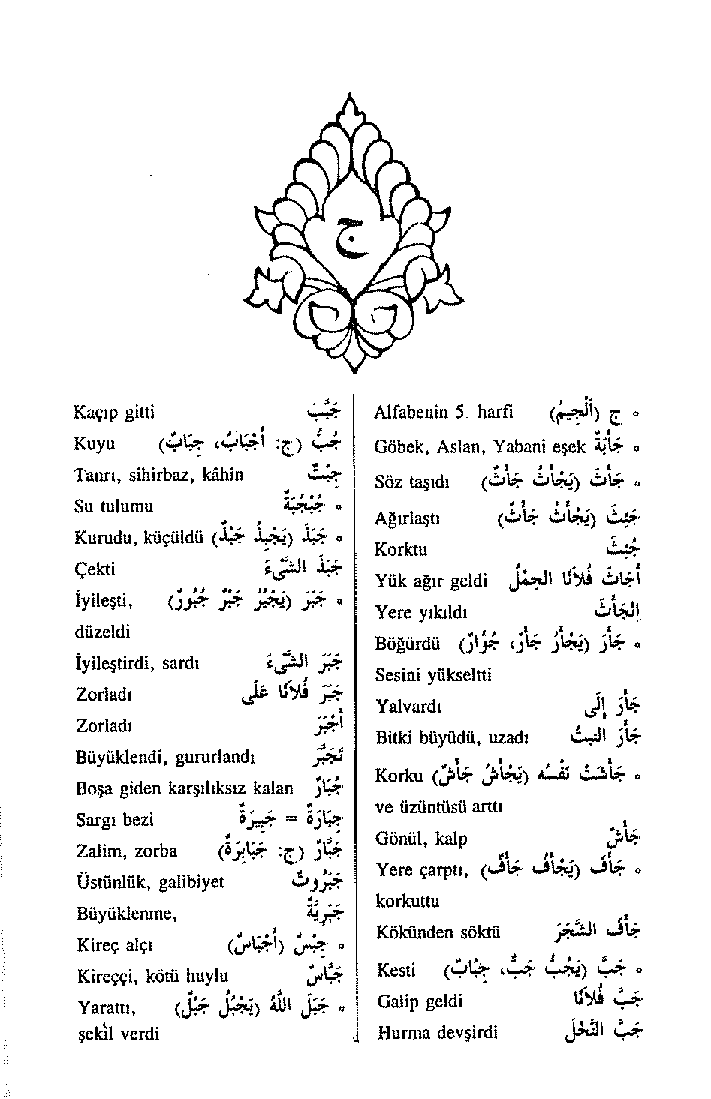 ج
° ج (اَلْجِيمُ) Alfabenin 5. harfi
° جَأْبَةٌ Göbek, Aslan, Yabani eşek
° جَأَثَ (يَجْأَثُ جَأْثٌ) Söz taşıdı
جَئِثَ (يَجْأَثُ جَأْثٌ) Ağırlaştı
جُئِثَ Korktu
أَجْأَثَ فُلَانًا الحِمْلُ Yük ağır geldi
اِنْجَأَثَ Yere yıkıldı
° جَأَرَ (يَجْأَرُ جَأْرٌ، جُؤَارٌ) Böğürdü
Sesini yükseltti
جَأَرَ إِلَى Yalvardı
جَأَرَ النَّبْتُ Bitki büyüdü, uzadı
° جَأَشَتْ نَفْسُهُ (يَجْأَشُ جَأْشٌ) Korku
ve üzüntüsü arttı
جَأْشٌ Gönül, kalp
° جَأَفَ (يَجْأَفُ جَأْفٌ) Yere çarptı,
korkuttu
جَأَفَ الشَّجَرَ Kökünden söktü
° جَبَّ (يَجُبُّ جَبٌّ، جِبَابٌ) Kesti
جَبَّ فُلَانًا Galip geldi
جَبَّ النَّخْلَ Hurma devşirdi
جَبَّبَ Kaçıp gitti
جُبٌّ (ج: أَجْبَابٌ، جِبَابٌ) Kuyu
جِبْتٌ Tanrı, sihirbaz, kâhin
° جُبْجُبَةٌ Su tulumu
° جَبَذَ (يَجْبِذُ جَبْذٌ) Kurudu, küçüldü
جَبَذَ الشَّيْءَ Çekti
° جَبَرَ (يَجْبُرُ جَبْرٌ جُبُورٌ) İyileşti,
düzeldi
جَبَرَ الشَّيْءَ İyileştirdi, sardı
جَبَرَ فُلَانًا عَلَى Zorladı
أَجْبَرَ Zorladı
تَجَبَّرَ Büyüklendi, gururlandı
جُبَارٌ Boşa giden karşılıksız kalan
جِبَارَةٌ = جَبِيرَةٌ Sargı bezi
جَبَّارٌ (ج: جَبَابِرَةٌ) Zalim, zorba
جَبَرُوتٌ Üstünlük, galibiyet
جَبْرِيَّةٌ Büyüklenme,
° جِبْسٌ (أَجْبَاسٌ) Kireç alçı
جَبَّاسٌ Kireççi, kötü huylu
° جَبَلَ اللّٰهُ (يَجْبُلُ جَبْلٌ) Yarattı,
şekil verdi